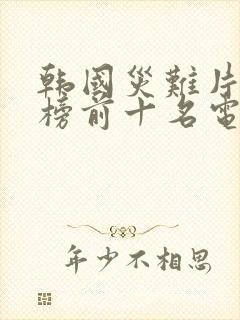 韩国災難片
榜前十名電
年少不相思